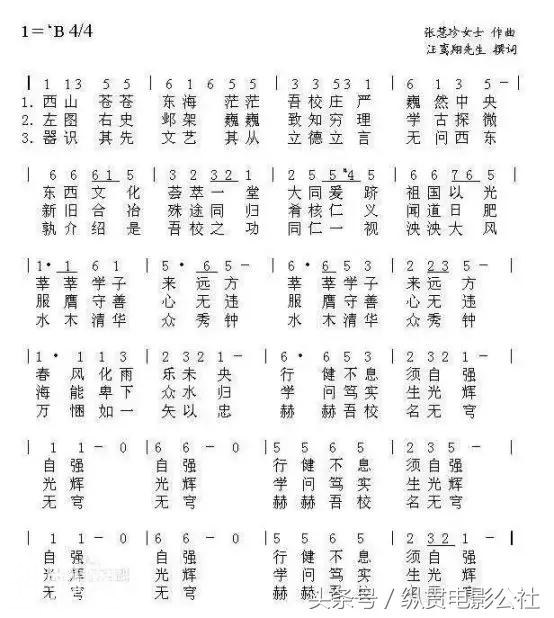 1=♭B 4/4
张慧珍女士 作曲
汪鸾翔先生 撰词
| 1 13 5 5 | 6 1 6 5 5 | 3 3 53 1 | 6 1 3 5 – |
1. 西山 苍苍 东海 茫茫 吾校庄严 巍然中央
2. 左图 右史 邺架 巍巍 致知穷理 学古探微
3. 器识 其先 文艺 其从 立德立言 无问西东
| 6 6 61 5 | 3 2 32 1 | 2 5 5 #4 5 | 6 6 76 5 |
东西文化 荟萃一堂 大同爱跻 祖国以光
新旧合冶 殊途同归 肴核仁义 闻道日肥
孰介绍是 吾校之功 同仁一视 泱泱大风
| 1· 1 6 1 | 5· 6 5 – | 6· 6 5 3 | 2 23 5 – |
莘莘学子 来远方 莘莘学子 来远方
服膺守善 心无违 服膺守善 心无违
水木清华 众秀钟 水木清华 众秀钟
| 1· 1 1 3 | 2 32 1 – | 6· 6 5 3 | 2 32 1 – |
春风化雨 乐未央 行健不息 须自强
海能卑下 众水归 学问笃实 生光辉
万悃如一 矢以忠 赫赫吾校 名无穹
| 1 1 – 0 | 6 6 – 0 | 5 5 6 5 | 2 3 5 – |
自强 自强 行健不息 须自强
光辉 光辉 学问笃实 生光辉
无穹 无穹 赫赫吾校 名无穹
| 1 1 – 0 | 6 6 – 0 | 5 5 6 3 | 2 32 1 – |
自强 自强 行健不息 须自强
光辉 光辉 学问笃实 生光辉
无穹 无穹 赫赫吾校 名无穹
头条号／纵贯电影公社